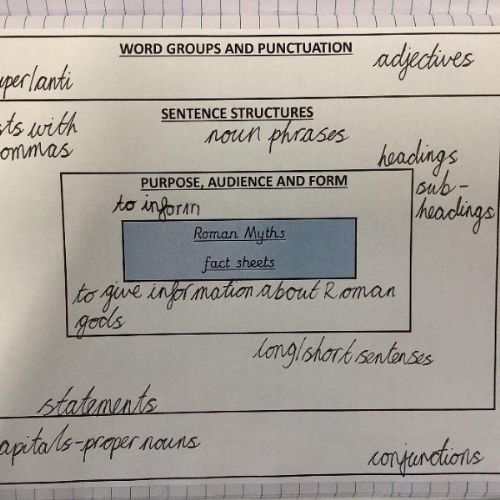 WORD GROUPS AND PUNCTUATION
adjectives
uper/anti
SENTENCE STRUCTURES
sts with
ommas
noun phrases
headings
sub-
headings
PURPOSE, AUDIENCE AND FORM
to inform
Roman Myths
fact sheets
to give information about Roman
gods
long/short sentences
statements
apitals-proper nouns
conjunctions